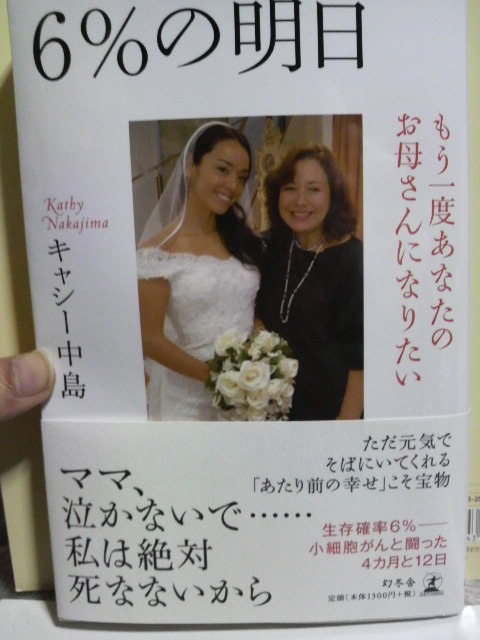 6%の明日
もう一度あなたの
お母さんになりたい
Kathy
Nakajima
キャシー中島
ただ元気で
そばにいてくれる
「あたり前の幸せ」こそ宝物
ママ、
泣かないで……
私は絶対
死なないから
生存確率6%──
小細胞がんと闘った
4カ月と12日
幻冬舎
定価(本体1300円+税)